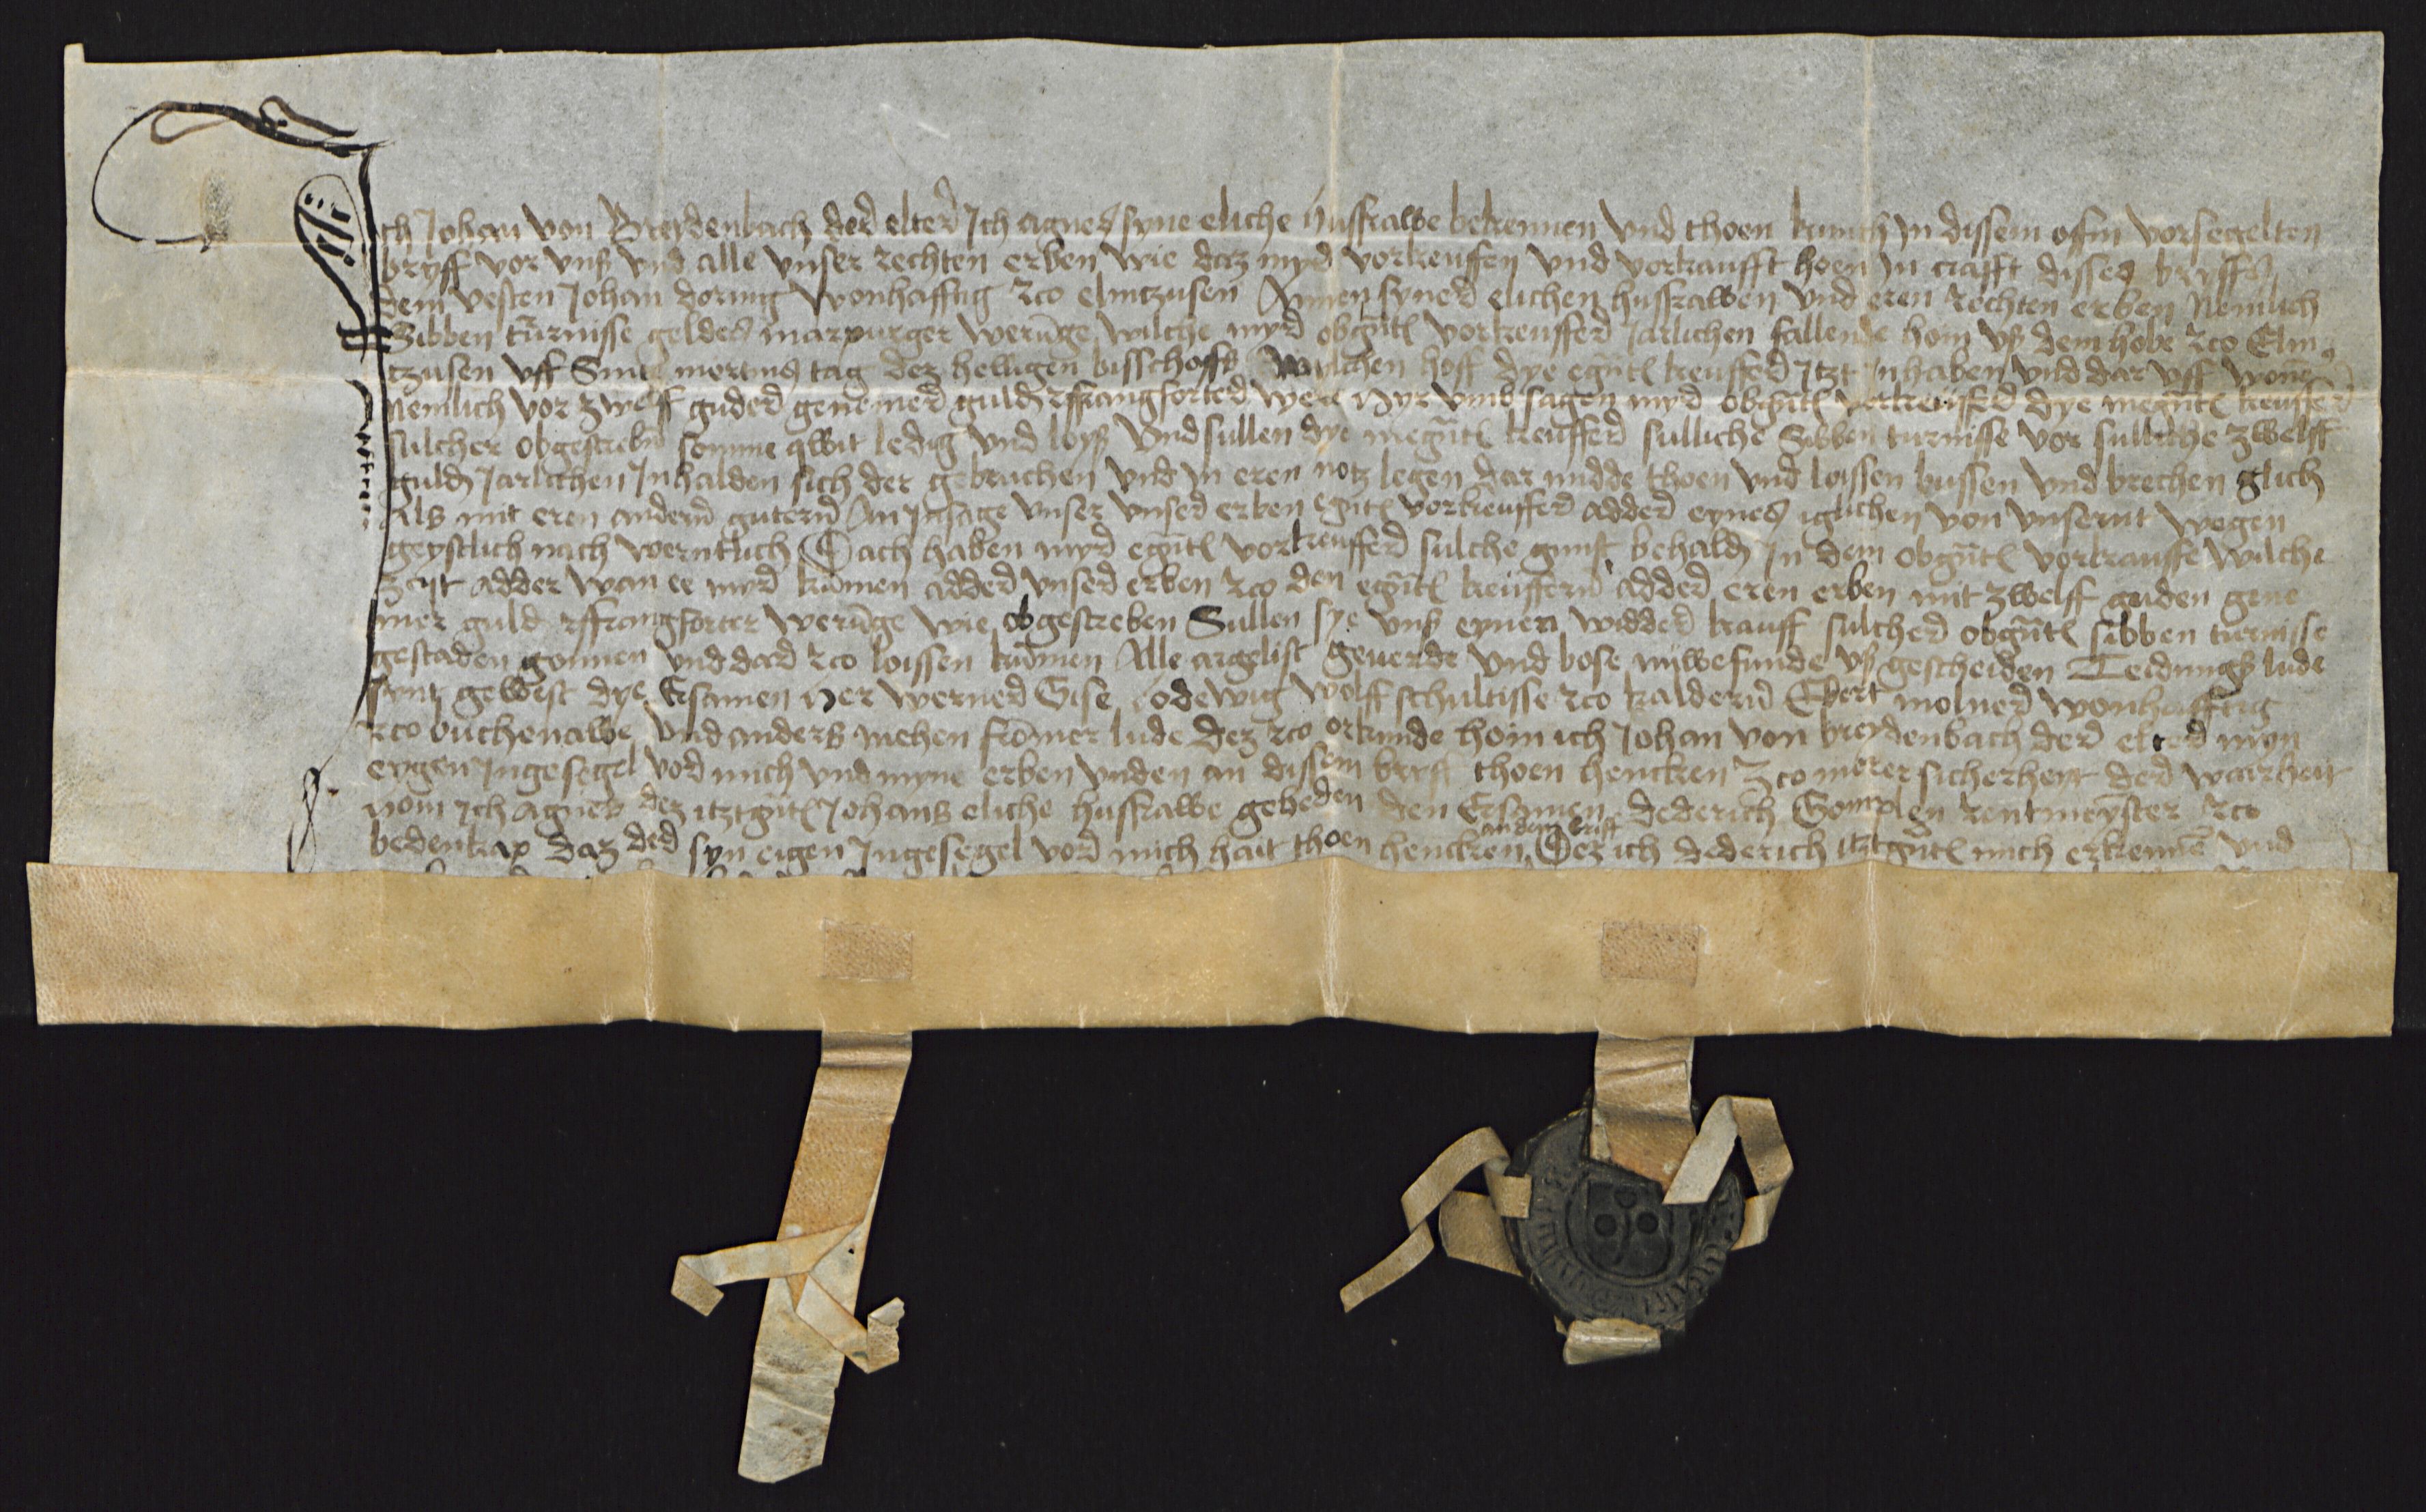 Ich Johan von Breydenbach der elter Ich agnes syne eliche husfrawe bekennen vnd thoen kunth in dissem offin vorsegelten
bryff vor vnß vnd alle vnser rechten erben wie daz myr vorkeuffen vnd vorkaufft hoen in crafft disses bryffs
dem vesten Johan doring wonhafftig zco elmtzusen Annen syner elichen husfrawen vnd eren rechten erben Nemlich
Sibben tůrnisse geldes marpurger werūge wilche myr obgn̄t vorkeuffer Jarlichen fallende hoin vß dem hobe zco Elm
tzusen vff Sint mertins tag dez heilligen bisschoffs Wilchen hoff dye egn̄t keuffer Itzt inhaben vnd dar vff wonē
Nemlich vor zwelff guder genemer guld ffrangforter were Hyr vmb sagen myr obgn̄t vorkeuffer dye megn̄t keuffer
sulcher obgescrebn̄ somme qwit ledig vnd loyß Vnd sullen dye megn̄t keuffer sulliche Sibben turnisse vor sulliche zwelff
guld Jarlichen Inhalden sich der gebruchen vnd in eren notz legen dar midde thoen vnd loissen bussen vnd brechen glich
Als mit eren andern gutern An Insage vnser vnser erben egn̄t vorkeuffer adder eynes iglichen von vnsernt wegen
geystlich nach werntlich Dach haben myr egn̄t vorkeuffer sulche gunst behald In dem obgn̄t vorkauffe wilche
zijt adder wan ee myr kōmen adder vnser erben zco den egn̄t keuffern adder eren erben mit zwelff guden gene
mer guld ffrangforter werūge wie obgescreben Sullen sye vnß eynen widder kauff sulcher obgn̄t sibben turnisse
gestaden gonnen vnd dar zco loissen kōmen Alle argelist geuerde vnd bose nuwefunde vß gescheiden Teidungs lude
synt gewest dye Ersamen Her werner Gise lodewig wolff schultisse zco kaldern Ebert molner wonhafftig
zco buchenawe vnd anders mehen frōmer lude Dez zco orkunde hoin ich Johan von breydenbach der elter myn
eygen Ingesegel vor mich vnd myne erben vnden an dissem bryff thoen hencken Zco merer sicherheyt der warheit
hoin Ich agnes dez itztgn̄t Johans eliche husfrawe gebeden den Ersamen dederich Gomplen rentmeyster zco
bedenkap daz der syn eigen Ingesegel vor mich hait thoen hencken an dezen briff Dez ich dederich itztgn̄t mich erkennē vnd